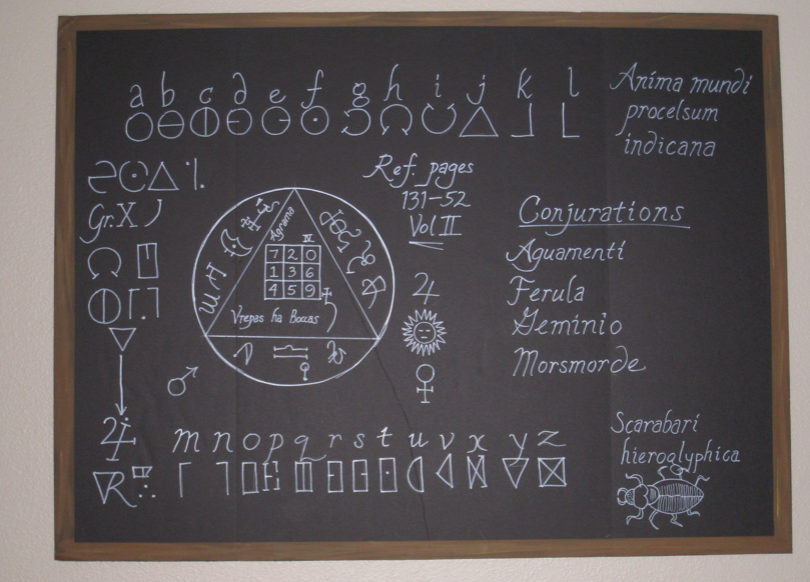 a b c d e f g h i j k l
Anima mundi
procelsum
indicana
Ref. pages
131–52
Vol II
Gr.X
Agrama
IV
7 2 0
1 3 6
4 5 9
Vrepas ha Boccas
Conjurations
Aguamenti
Ferula
Geminio
Morsmorde
m n o p q r s t u v x y z
Scarabari
hieroglyphica